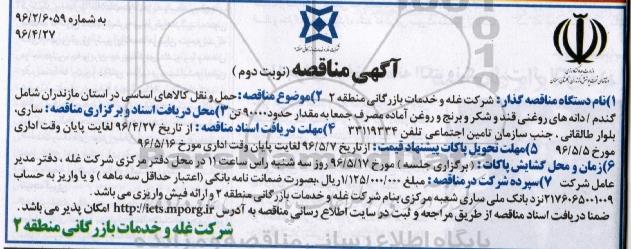 به شماره ۹۶/۲/۶۰۵۹
۹۶/۴/۲۷
آگهی مناقصه (نوبت دوم)
۱)نام دستگاه مناقصه گذار: شرکت غله و خدمات بازرگانی منطقه ۲ ۲)موضوع مناقصه: حمل و نقل کالاهای اساسی در استان مازندران شامل
گندم / دانه های روغنی قند و شکر و برنج و روغن آماده مصرف جمعا به مقدار حدود ۹۰۰۰۰ تن ۳)محل دریافت اسناد و برگزاری مناقصه: ساری،
بلوار طالقانی ، جنب سازمان تامین اجتماعی تلفن ۳۳۱۱۹۳۳۴ ۴)مهلت دریافت اسناد مناقصه: از تاریخ ۹۶/۴/۲۷ لغایت پایان وقت اداری
مورخ ۹۶/۵/۵ ۵)مهلت تحویل پاکات پیشنهاد قیمت: از تاریخ ۹۶/۵/۷ لغایت پایان وقت اداری مورخ ۹۶/۵/۱۶
۶)زمان و محل گشایش پاکات: (برگزاری جلسه) مورخ ۹۶/۵/۱۷ روز سه شنبه راس ساعت ۱۱ در محل دفتر مرکزی شرکت غله ، دفتر مدیر
عامل شرکت ۷)سپرده شرکت در مناقصه: مبلغ ۱/۱۲۵/۰۰۰/۰۰۰ ریال ،بصورت ضمانت نامه بانکی (اعتبار حداقل سه ماهه ) و یا واریز به حساب
۲۱۷۶۰۶۵۰۰۱۰۰۹ نزد بانک ملی ساری شعبه مرکزی بنام شرکت غله و خدمات بازرگانی منطقه ۲ و ارائه فیش واریزی می باشد.
ضمنا دریافت اسناد مناقصه از طریق مراجعه و ثبت در سایت اطلاع رسانی مناقصه به آدرس http://iets.mporg.ir امکان پذیر می باشد.
شرکت غله و خدمات بازرگانی منطقه ۲